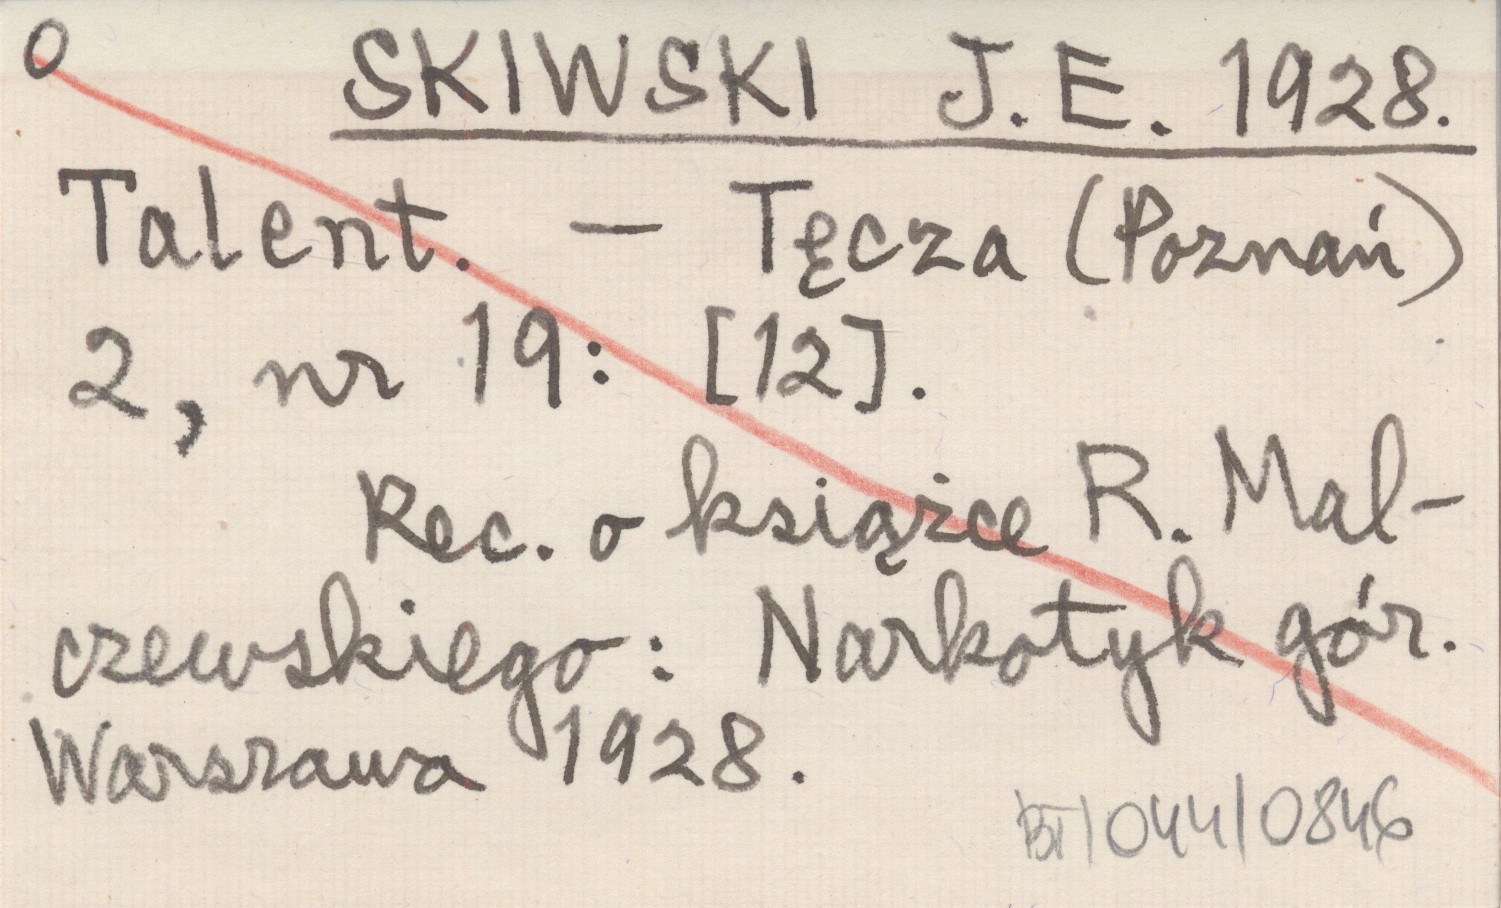 O SKIWSKI J.E. 1928.
Talent. — Tęcza (Poznań)
2, nr 19: [12].
Rec. o książce R. Mal-
czewskiego: Narkotyk gór.
Warszawa 1928.
BT/044/0846